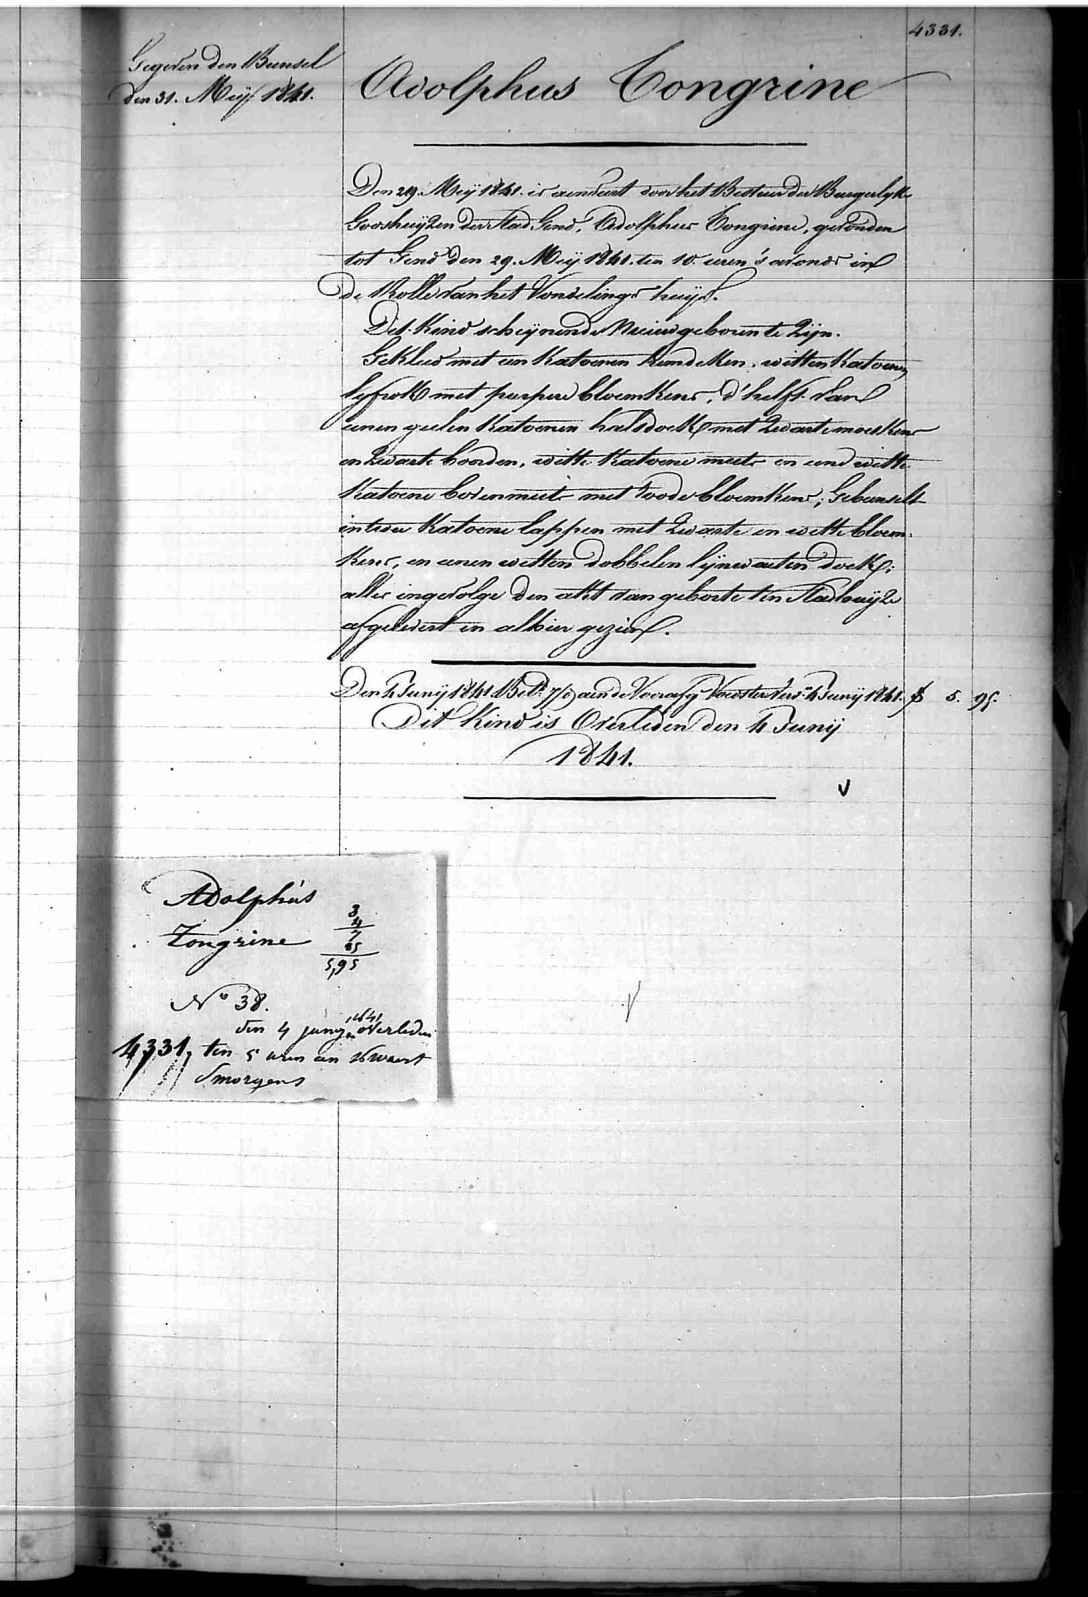 4331.
Gegeven den Bunsel
den 31. Meij 1841.
Adolphus Tongrine
Den 29. Meij 1841. is aenveert door het Bestier der Burgerlyke
Godshuijzen der Stad Gend, Adolphus Tongrine, gevonden
tot Gend den 29. Meij 1841. ten 10. uren 's avonds in
de Rolle van het Vondelings huijs.
Dit Kind scheijnende Nieuwgeboren te Zijn.
Gekleed met een Katoenen hemdeken, witten Katoenen
lyfrok met purpere bloemkens, d'helft van
eenen geelen Katoenen halsdoek met Zwarte moeskens
en Zwarte boorden, witte Katoene muts en eene witte
Katoene bovenmuts met roode bloemkens; Gebunselt
in twee Katoene lappen met Zwarte en witte bloem-
kens, en eenen witten dobbelen lijnwaeten doek;
alles ingevolge den akt van geborte ten Stadhuijze
afgelevert en alhier gezien.
Den 4 Junij 1841 Bet. 7/ aen de Voorzeg Voedster 4 Junij 1841. f 5. 95.
Dit Kind is Overleden den 4 Junij
1841.
Adolphus
Tongrine
3
4
7
65
5,95
N° 38.
den 4 junij 1841 overleden
4331, ten 5 uren en kwaert
smorgens